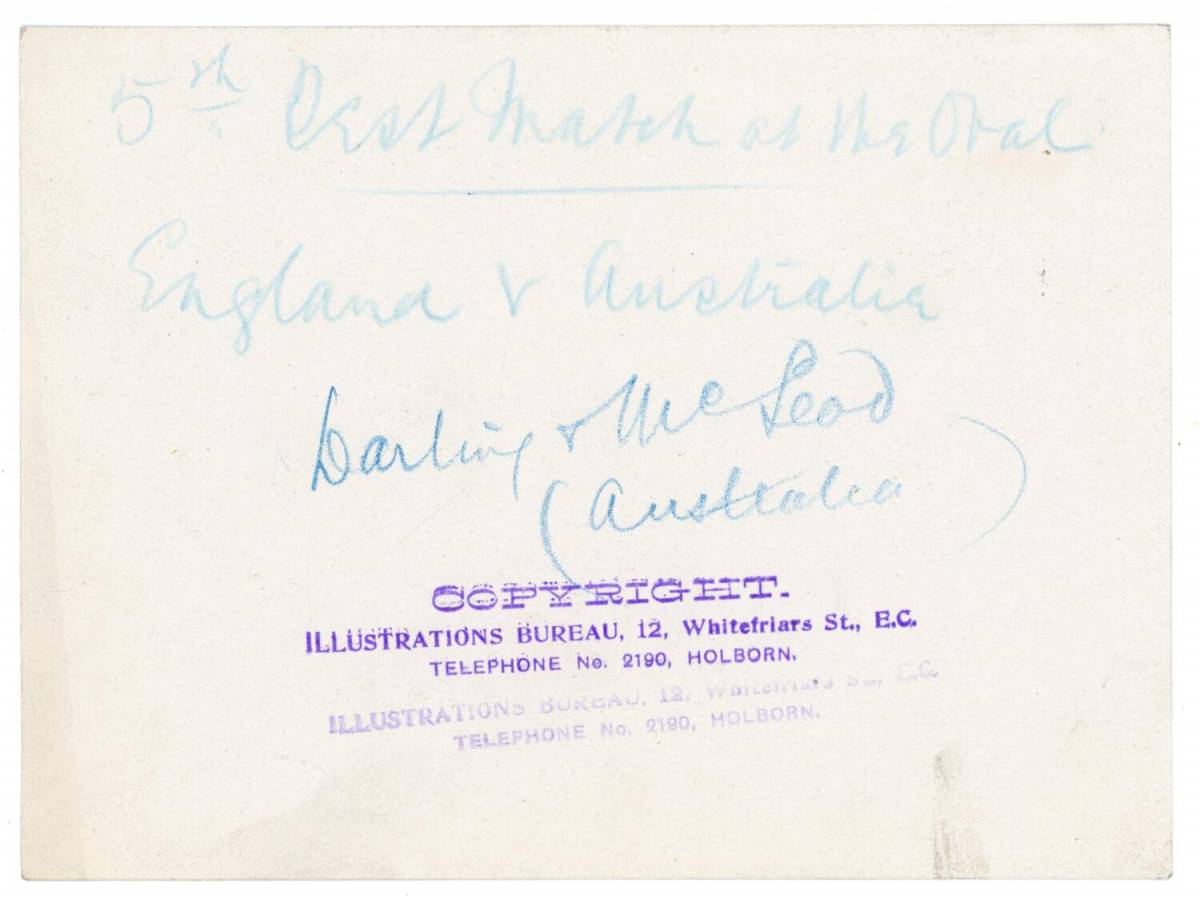 5th Test Match at the Oval
England v Australia
Darling & McLeod
(Australia)
COPYRIGHT.
ILLUSTRATIONS BUREAU, 12, Whitefriars St., E.C.
TELEPHONE No. 2190, HOLBORN.
ILLUSTRATIONS BUREAU, 12, Whitefriars St., E.C.
TELEPHONE No. 2190, HOLBORN.